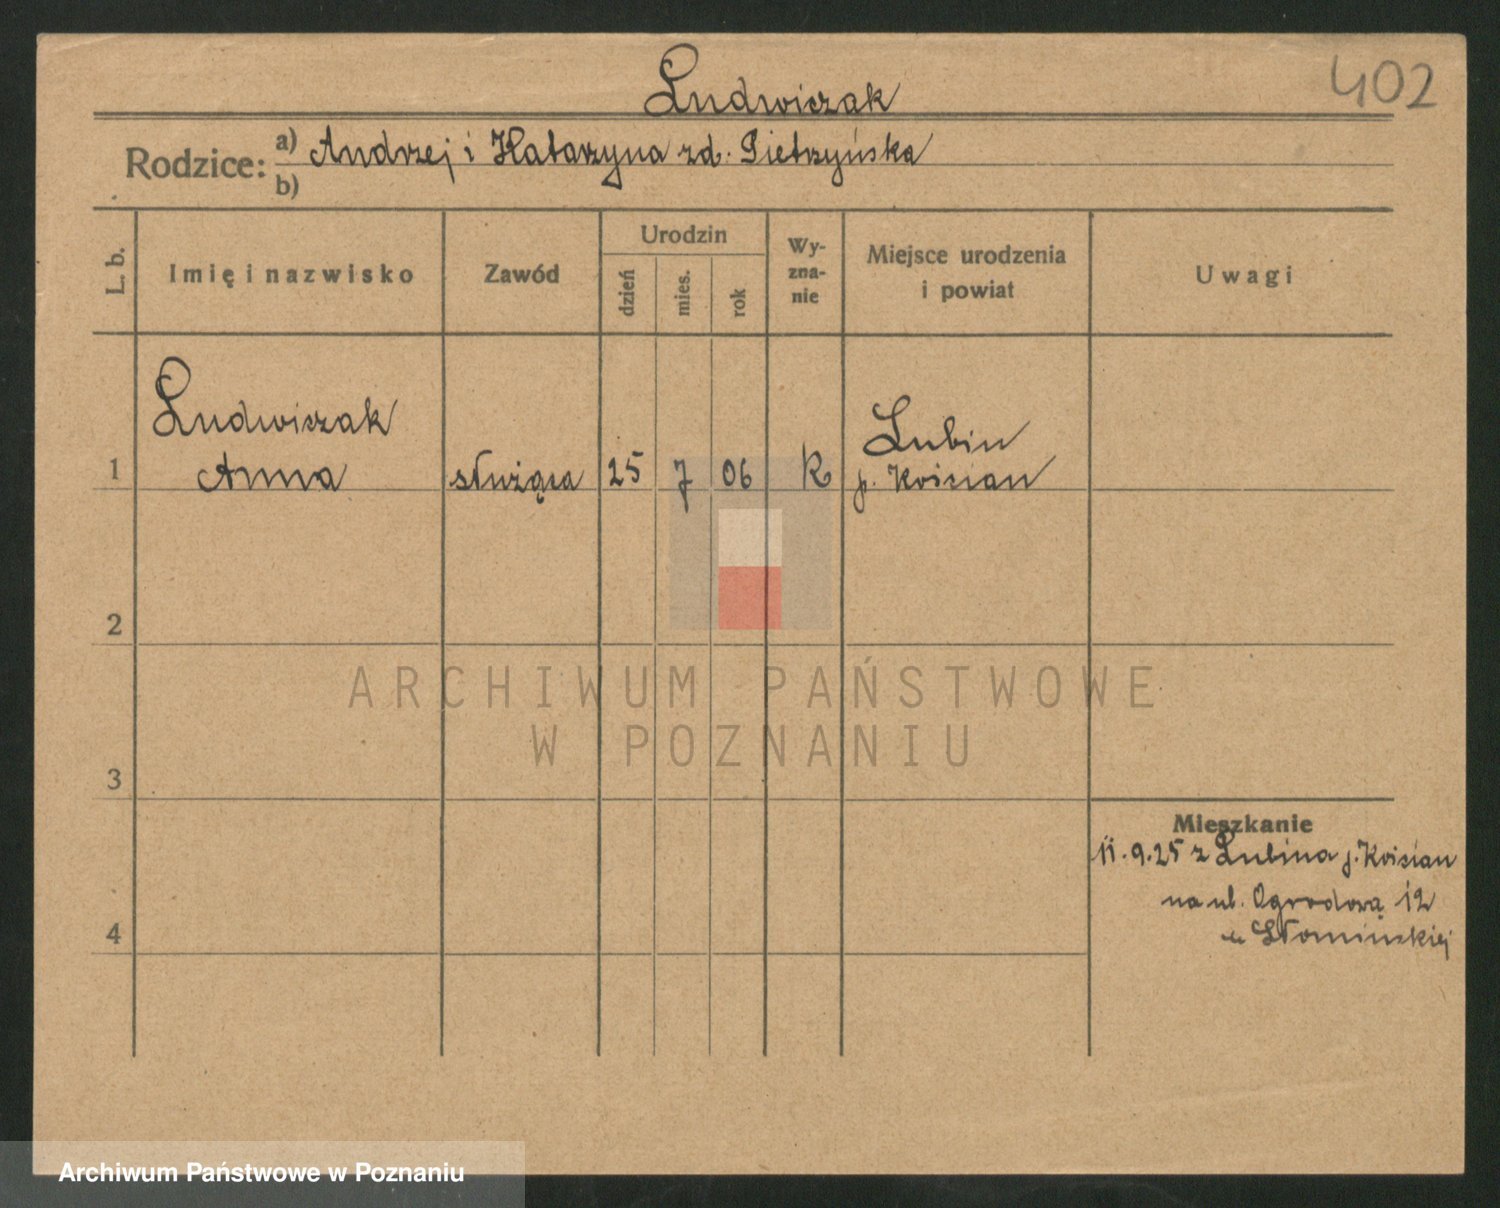 Ludwiczak
402
Rodzice: a) Andrzej i Katarzyna zd. Pietrzyńska
b)
L. b.
Imię i nazwisko
Zawód
Urodzin
dzień
mies.
rok
Wy-
zna-
nie
Miejsce urodzenia
i powiat
Uwagi
Ludwiczak
1 Anna służąca 25 7 06 K
Lubin
p. Kościan
2
ARCHIWUM PAŃSTWOWE
W POZNANIU
3
Mieszkanie
11.9.25 z Lubina p. Kościan
na ul. Ogrodową 12
Słomińskiej
4
Archiwum Państwowe w Poznaniu